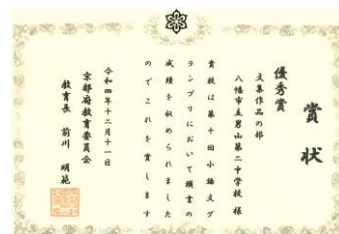 賞状
優秀賞
文集作品の部
八幡市立男山第二中学校 様
貴校は第十回小論文グ
ランプリにおいて頭書の
成績を収められました
のでこれを賞します
令和四年十二月十一日
京都府教育委員会
教育長 前川 明範